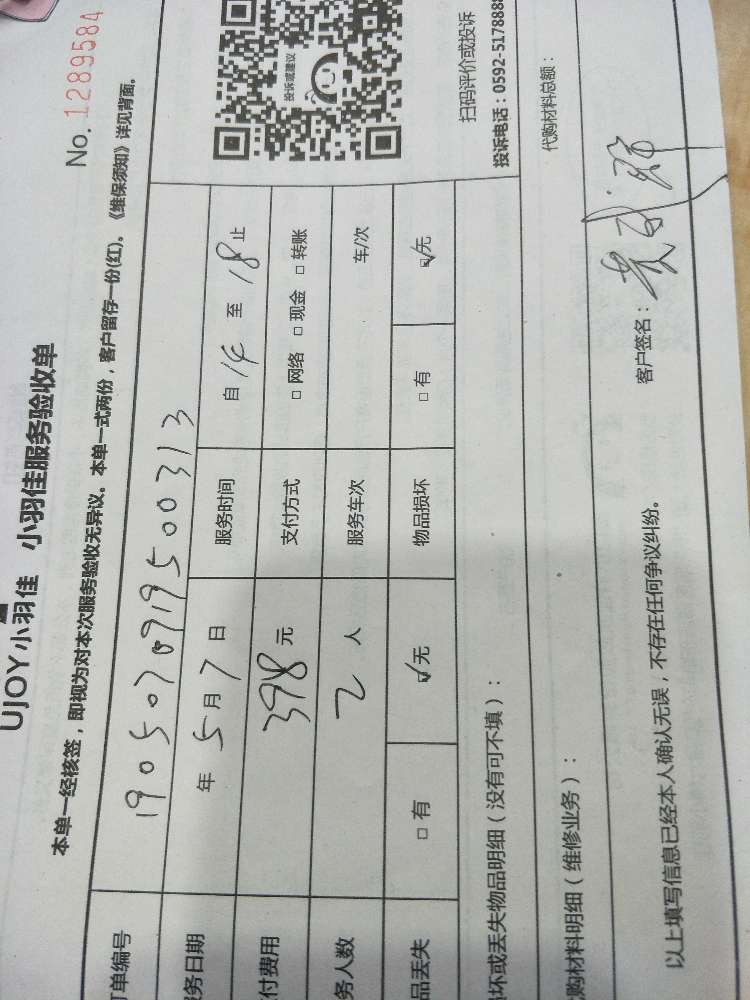 No. 1289584
UJOY小羽佳 小羽佳服务验收单
本单一经核签，即视为对本次服务验收无异议。本单一式两份，客户留存一份(红)。《维保须知》详见背面。
订单编号
服务日期 年 5 月 7 日 服务时间 自 14 至 18 止
付费用 398 元 支付方式 □ 网络 □ 现金 □ 转账
务人数 2 人 服务车次 车/次
品丢失 □ 有 ☑无 物品损坏 □ 有 ☑无
投诉或建议
扫码评价或投诉
投诉电话：0592-5178888
坏或丢失物品明细（没有可不填）：
购材料明细（维修业务）： 代购材料总额：
以上填写信息已经本人确认无误，不存在任何争议纠纷。 客户签名：